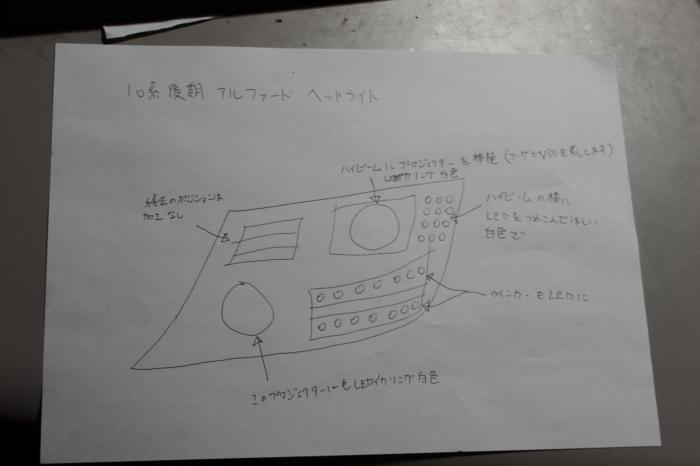 10系 後期 アルファード ヘッドライト
ハイビームにプロジェクターを移植
LEDイカリング 白色
純正のポジションは
加工なし
ハイビームの横に
LEDをうめこんでほしい
白色で
ウインカーをLEDに
このプロジェクターにもLEDイカリング 白色